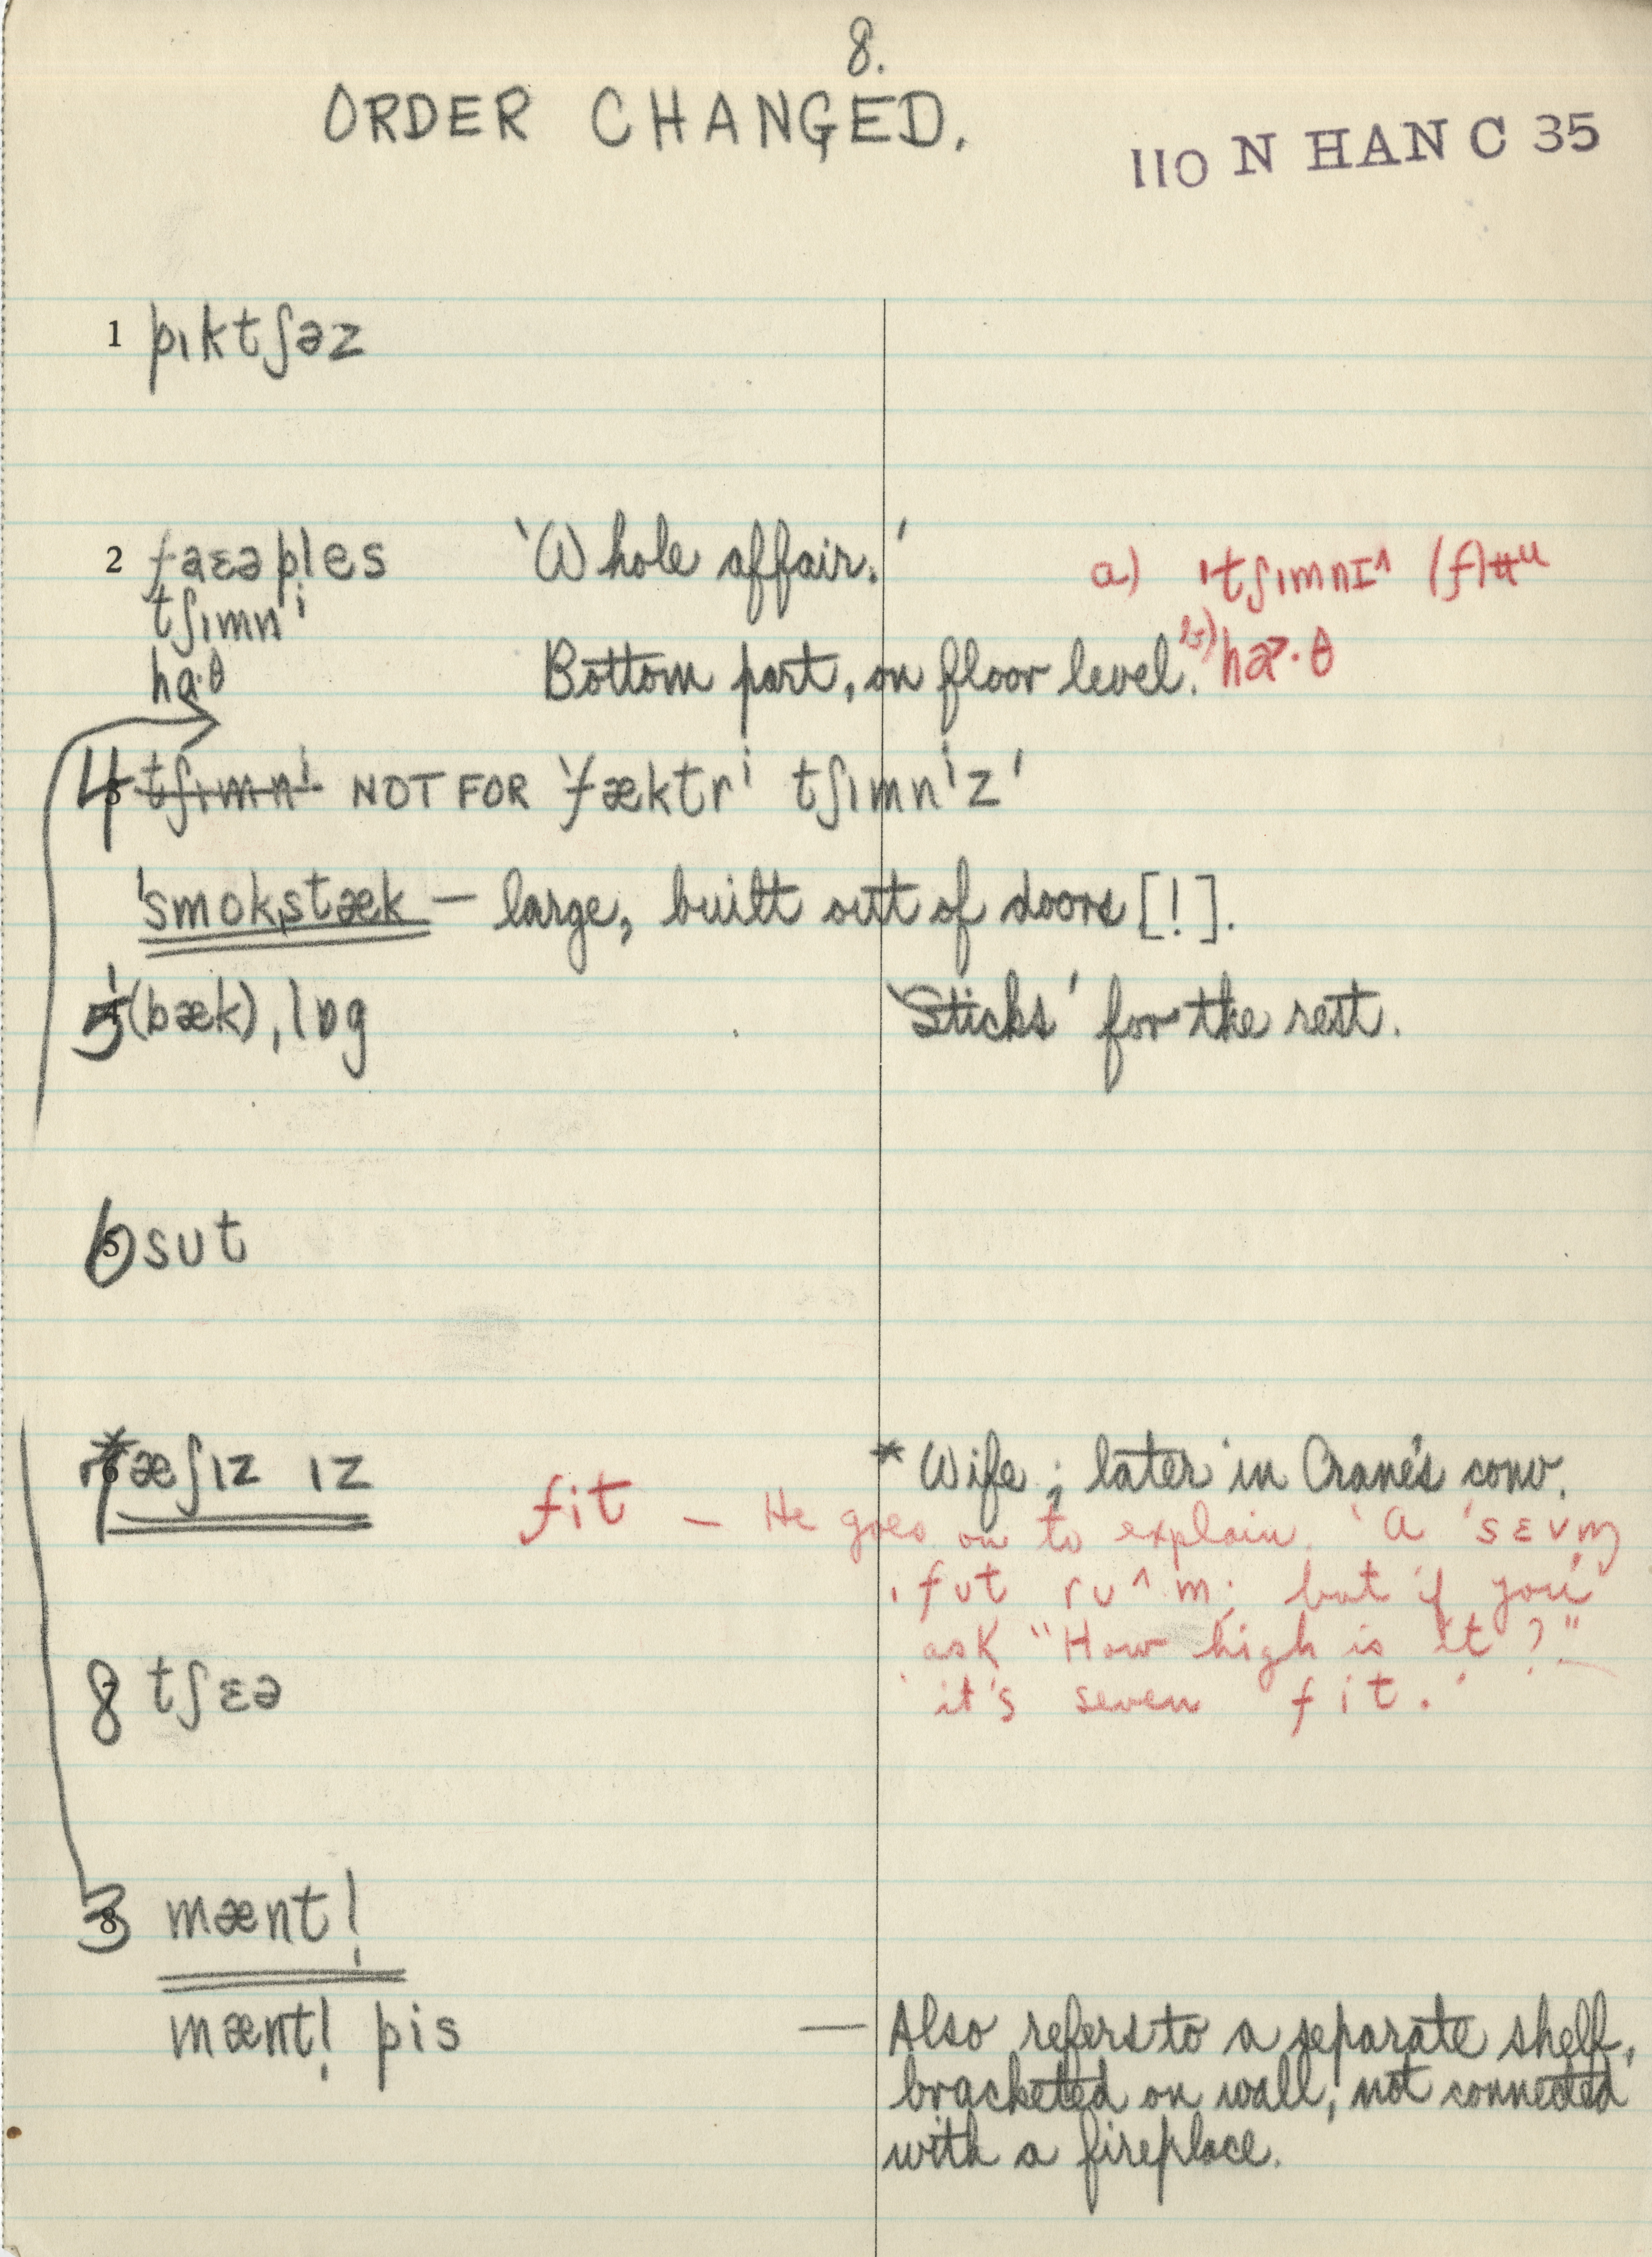 8.
ORDER CHANGED.
110 N HAN C 35
1 pɪktʃəz
2 faɛəples 'Whole affair.' a) 'tʃɪmnɪ^
tʃɪmnⁱ
hɑ·θ Bottom part, on floor level. b) ha>·θ
4 tʃɪmnⁱ NOT FOR 'fæktrⁱ tʃɪmnⁱz'
'smokˌstæk — large, built out of doors [!].
5 '(bæk)ˌlɒg 'Sticks' for the rest.
6 sʊt
7 *æʃɪz ɪz * Wife; later in Crane's conv.
fit — He goes on to explain. 'A 'sɛvm̩
ˌfʊt rʊ^m; but if you
ask "How high is it?" —
it's seven fit.'
8 tʃɛə
3 mæntl̩
mæntl̩ pis — Also refers to a separate shelf,
bracketed on wall, not connected
with a fireplace.